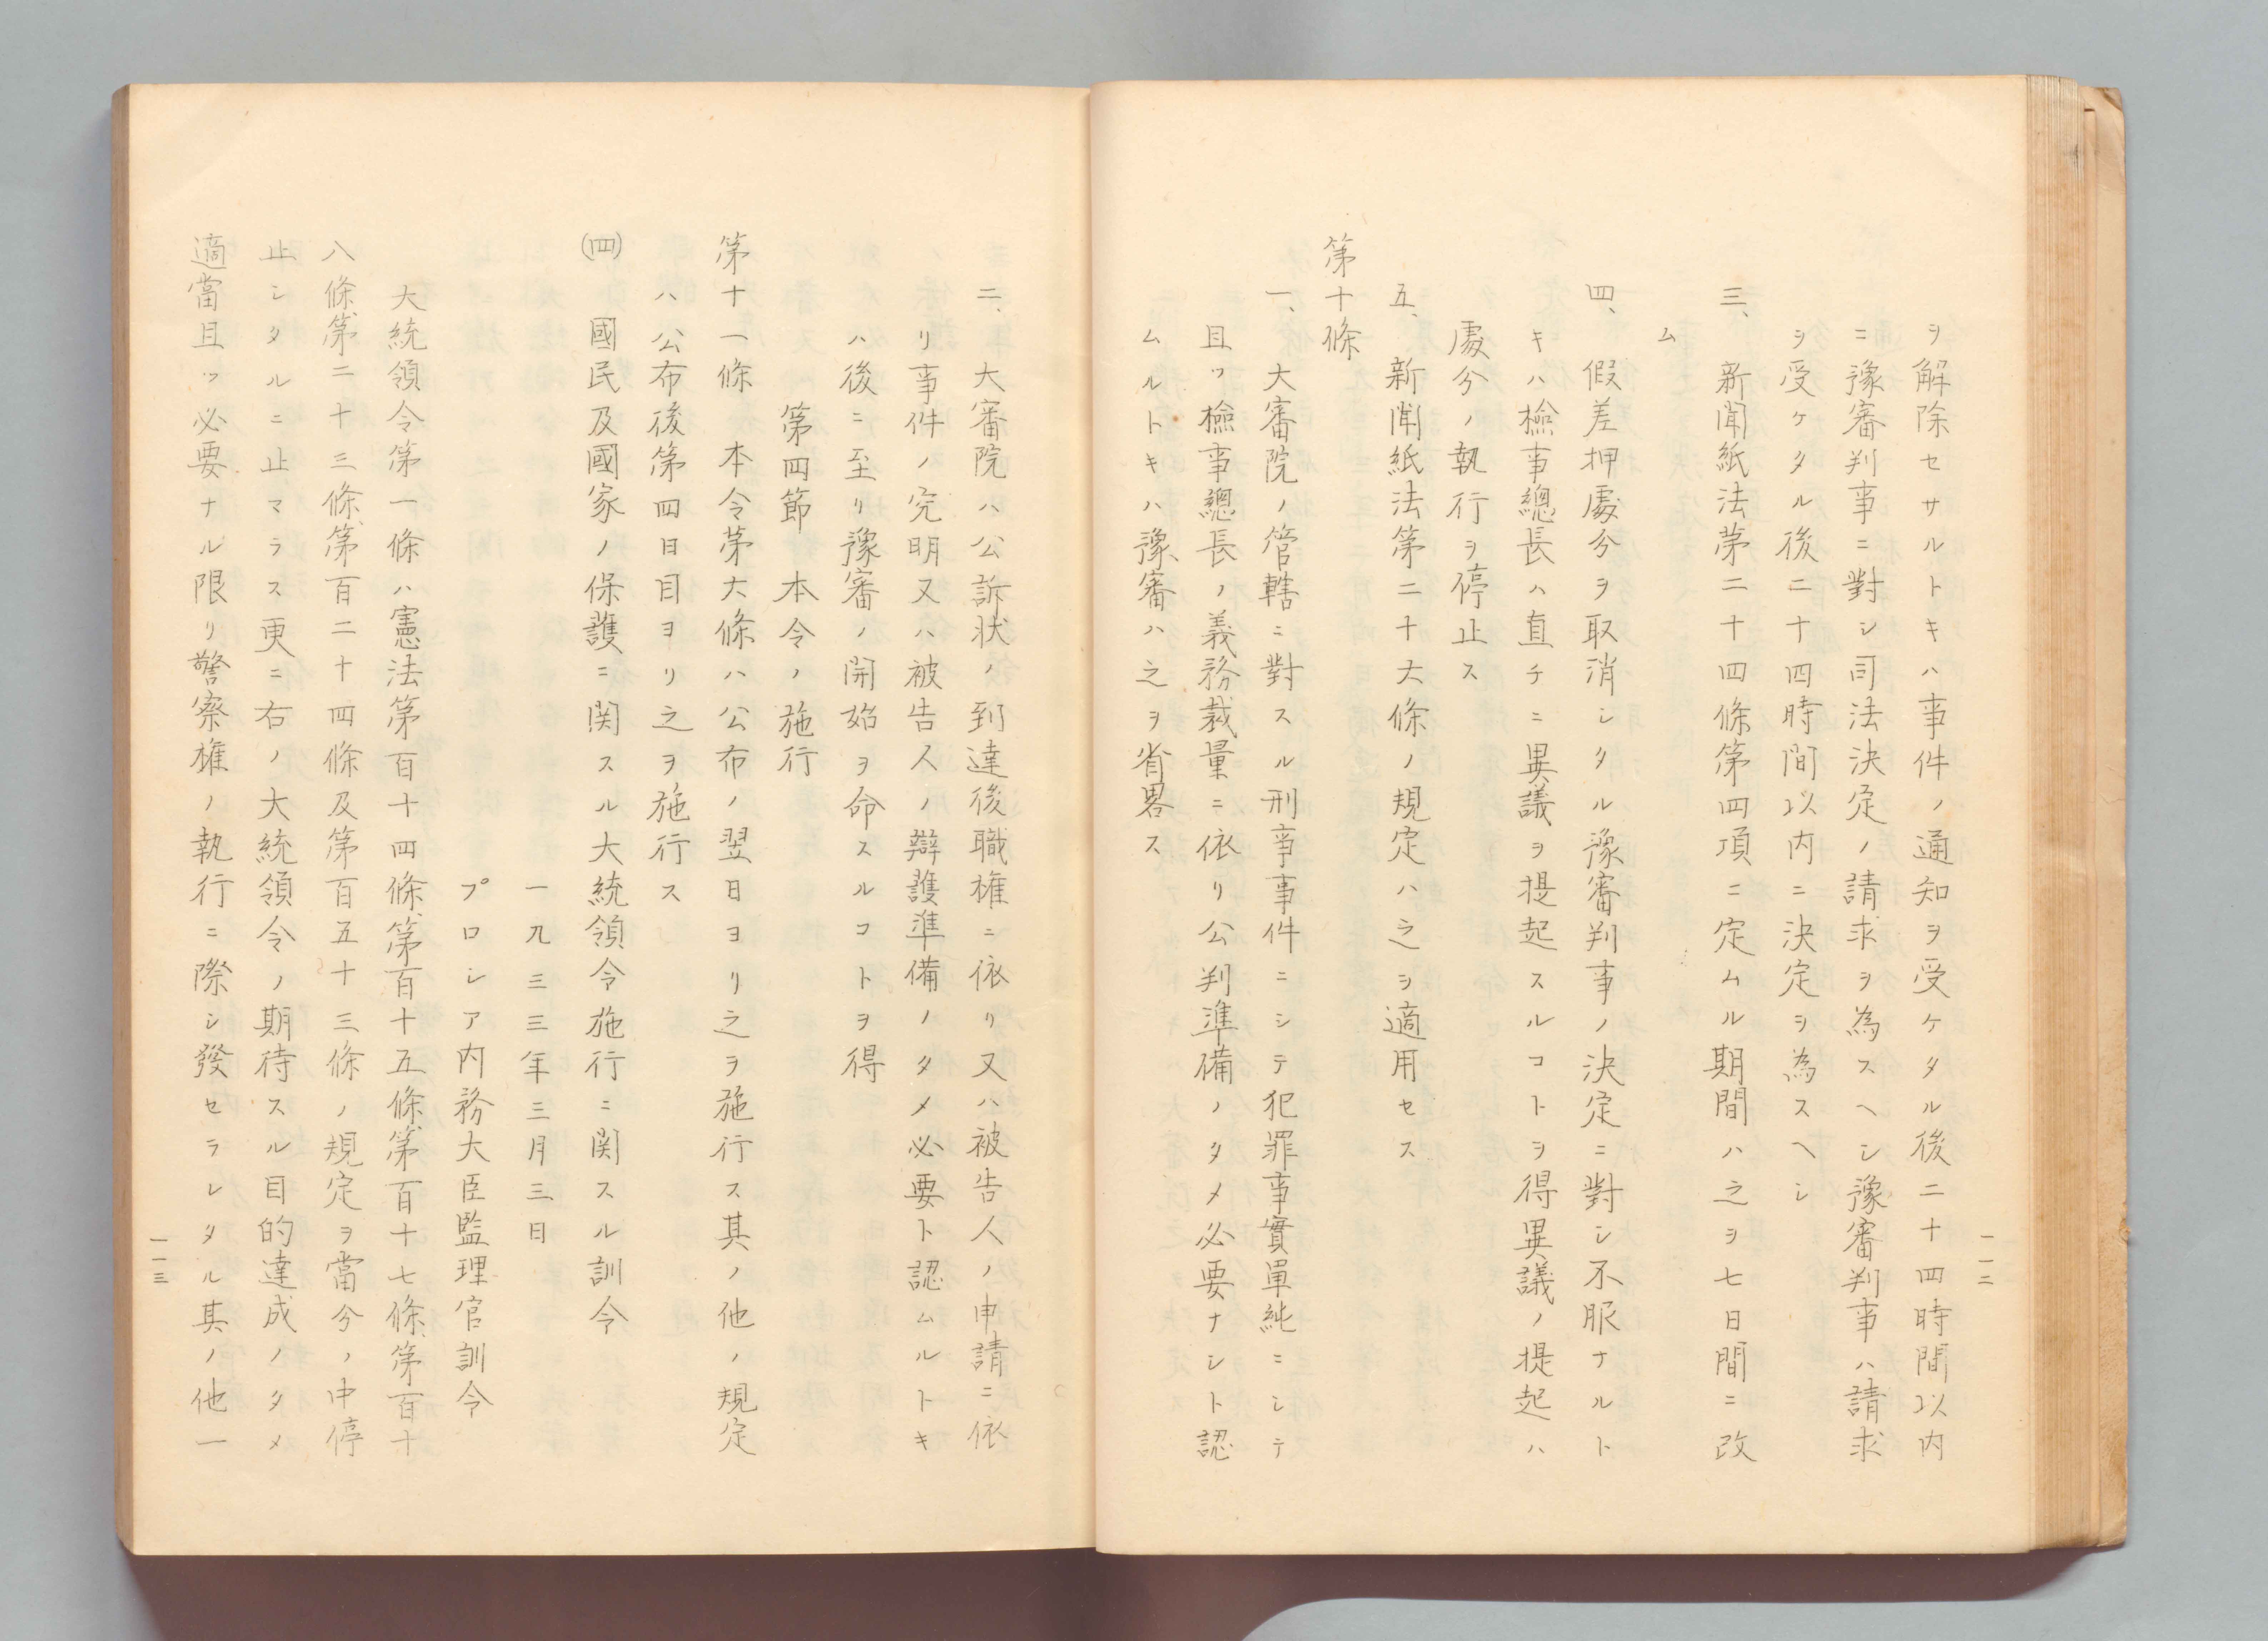 一一二
ヲ解除セサルトキハ事件ノ通知ヲ受ケタル後二十四時間以内
ニ豫審判事ニ對シ司法決定ノ請求ヲ為スヘシ豫審判事ハ請求
ヲ受ケタル後二十四時間以内ニ決定ヲ為スヘシ
三、新聞紙法第二十四條第四項ニ定ムル期間ハ之ヲ七日間ニ改
ム
四、假差押處分ヲ取消シタル豫審判事ノ決定ニ對シ不服ナルト
キハ檢事總長ハ直チニ異議ヲ提起スルコトヲ得異議ノ提起ハ
處分ノ執行ヲ停止ス
五、新聞紙法第二十六條ノ規定ハ之ヲ適用セス
第十條
一、大審院ノ管轄ニ對スル刑事事件ニシテ犯罪事實單純ニシテ
且ツ檢事總長ノ義務裁量ニ依リ公判準備ノタメ必要ナシト認
ムルトキハ豫審ハ之ヲ省畧ス
二、大審院ハ公訴状ノ到達後職権ニ依リ又ハ被告人ノ申請ニ依
リ事件ノ究明又ハ被告人ノ辯護準備ノタメ必要ト認ムルトキ
ハ後ニ至リ豫審ノ開始ヲ命スルコトヲ得
第四節　本令ノ施行
第十一條　本令第六條ハ公布ノ翌日ヨリ之ヲ施行ス其ノ他ノ規定
ハ公布後第四日目ヨリ之ヲ施行ス
(四)　國民及國家ノ保護ニ関スル大統領令施行ニ関スル訓令
一九三三年三月三日
プロシア内務大臣監理官訓令
大統領令第一條ハ憲法第百十四條第百十五條第百十七條第百十
八條第二十三條第百二十四條及第百五十三條ノ規定ヲ當分ノ中停
止シタルニ止マラス更ニ右ノ大統領令ノ期待スル目的達成ノタメ
適當且ツ必要ナル限リ警察権ノ執行ニ際シ發セラレタル其ノ他一
一一三